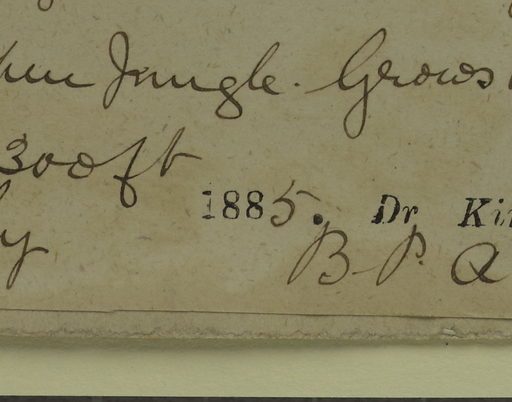 Jungle. Grows
300 ft
1885. Dr
y B. P. Q